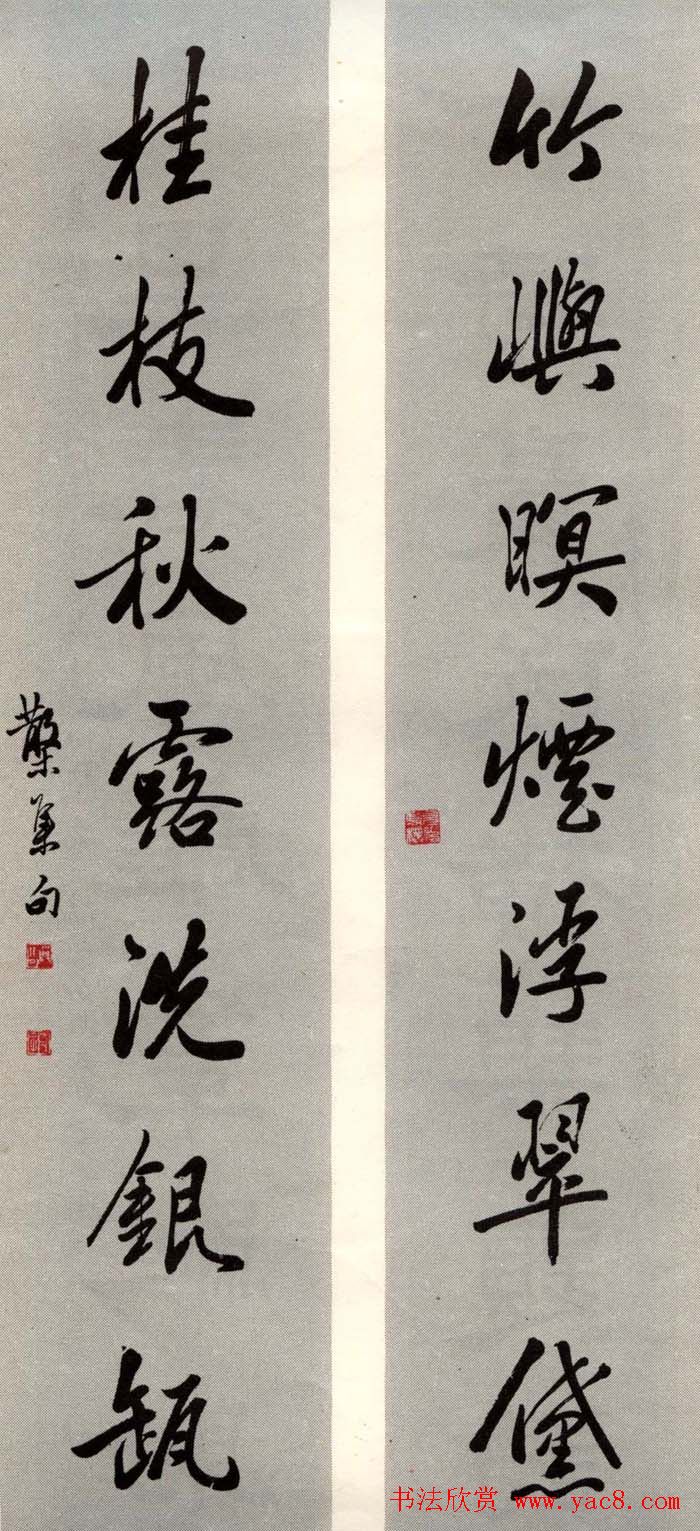 竹嶼暝煙浮翠黛
桂枝秋露洗銀缻
集句
书法欣赏 www.yac8.com